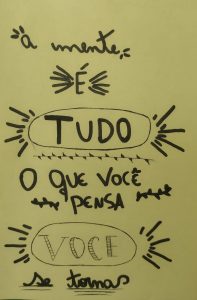 a mente
É
TUDO
O QUE VOCÊ
PENSA
VOCE
se torna